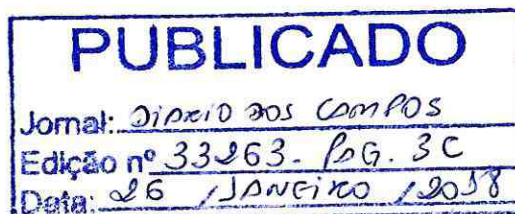 PUBLICADO
Jornal: DIARIO DOS CAMPOS
Edição nº 33263. PAG. 3C
Data: 26 / JANEIRO / 2018